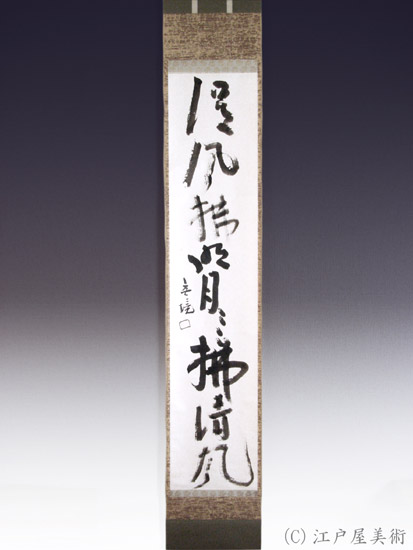 清風拂明月〻拂清風
(C)江戸屋美術